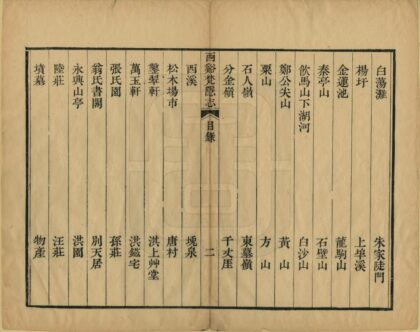 白蕩灘 朱家陡門
楊圩 上埠溪
金蓮池 龍駒山
秦亭山 石壁山
飲馬山下湖河 白沙山
鄭公尖山 黃山
栗山 方山
石人嶺 東墓嶺
分金嶺 千丈厓
西谿梵隱志 目錄 二
西溪 堍泉
松木場市 唐村
翠軒 洪上艸堂
萬玉軒 洪鐘宅
張氏園 孫莊
翁氏書閣 別天居
永興山亭 洪園
陸莊 汪莊
墳墓 物產